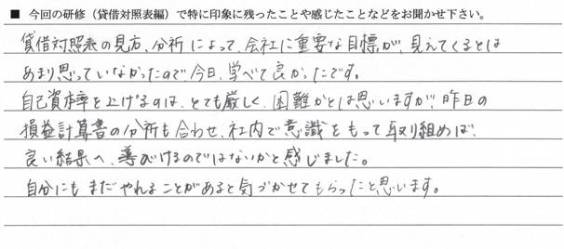 ■ 今回の研修（貸借対照表編）で特に印象に残ったことや感じたことなどをお聞かせ下さい。
貸借対照表の見方、分析によって、会社に重要な目標が、見えてくるとは
あまり思っていなかったので今日、学べて良かったです。
自己資本率を上げるのは、とても厳しく、困難かとは思いますが、昨日の
損益計算書の分析も合わせ、社内で意識をもって取り組めば、
良い結果へ、導びけるのではないかと感じました。
自分にもまだやれることがあると気づかせてもらったと思います。